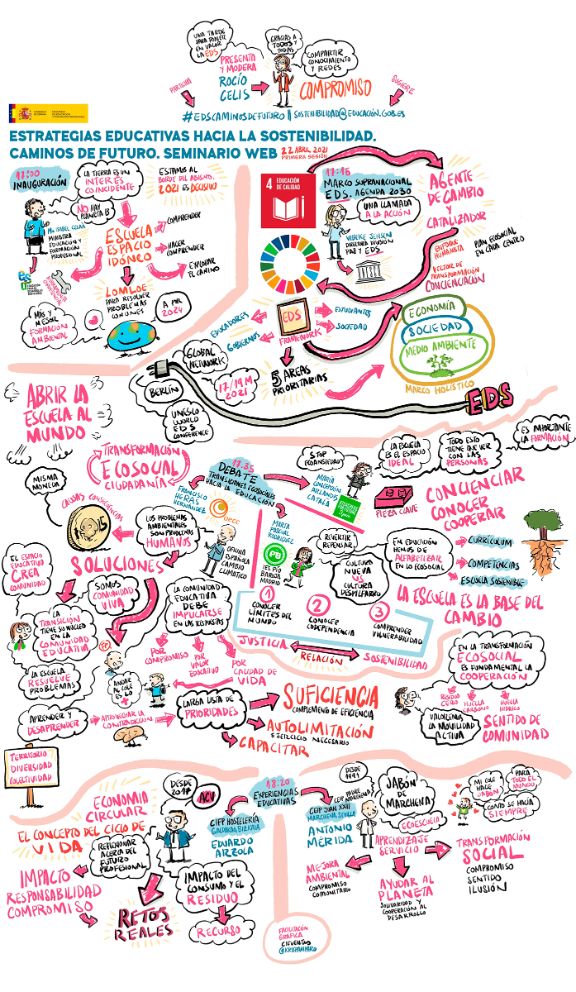 UNA TARDE
PARA PONER
EN VALOR
LA EDS
PRESENTA
Y MODERA
ROCÍO
CELIS
GRACIAS A
TODOS Y
TODAS
COMPARTIR
CONOCIMIENTO
Y REDES
COMPROMISO
PARTICIPA
SUGIERE
#EDSCAMINOSDEFUTURO | SOSTENIBILIDAD@EDUCACIÓN.GOB.ES
ESTRATEGIAS EDUCATIVAS HACIA LA SOSTENIBILIDAD.
CAMINOS DE FUTURO. SEMINARIO WEB 22 ABRIL, 2021
PRIMERA SESIÓN
17:00
INAUGURACIÓN
LA TIERRA ES UN
INTERÉS
COINCIDENTE
ESTAMOS AL
BORDE DEL ABISMO.
2021 ES DECISIVO
NO HAY
PLANETA B
Mª ISABEL CELAÁ
MINISTRA
EDUCACIÓN Y
FORMACIÓN
PROFESIONAL
ESCUELA
ESPACIO
IDÓNEO
COMPRENDER
HACER
COMPRENDER
EXPLICAR
EL CAMINO
LOMLOE
PARA RESOLVER
PROBLEMAS
COMUNES
MÁS Y
MEJOR
FORMACIÓN
AMBIENTAL
4 EDUCACIÓN
DE CALIDAD
17:15
MARCO SUPRANACIONAL
EDS. AGENDA 2030
UNA LLAMADA
A LA ACCIÓN
VIBEKE JENSEN
DIRECTORA DIVISIÓN
PAZ Y EDS
AGENTE
DE CAMBIO
CATALIZADOR
ENFOQUE
HUMANISTA
PLAN ECOSOCIAL
EN CADA CENTRO
VECTOR DE
TRANSFORMACIÓN
CONCIENCIACIÓN
EDS
FRAMEWORK
EDUCADORES
GOBIERNOS
ESTUDIANTES
SOCIEDAD
5 ÁREAS
PRIORITARIAS
ECONOMÍA
SOCIEDAD
MEDIO AMBIENTE
MARCO HOLÍSTICO
GLOBAL
NETWORK
BERLÍN
17/19 M
2021
UNESCO
WORLD
EDS
CONFERENCE
EDS
ABRIR LA
ESCUELA AL
MUNDO
TRANSFORMACIÓN
ECOSOCIAL
CIUDADANÍA
MISMA
MONEDA
LOS PROBLEMAS
AMBIENTALES
SON PROBLEMAS
HUMANOS
17:35
DEBATE
TRANSICIONES ECOLÓGICAS
HACIA LA EDUCACIÓN
FRANCISCO
HERAS
HERNÁNDEZ
OECC
OFICINA
ESPAÑOLA
CAMBIO
CLIMÁTICO
STOP
ECOANSIEDAD
MARTA
PASCUAL
RODRÍGUEZ
IES PÍO
BAROJA
MADRID
REVERTIR
REPENSAR
CULTURA
NUEVA
VS
CULTURA
DESPILFARRO
LA ESCUELA
ES EL ESPACIO
IDEAL
TODO ESTO
TIENE QUE VER
CON LAS
PERSONAS
ES IMPORTANTE
LA FORMACIÓN
PIEZA CLAVE
CONCIENCIAR
CONOCER
COOPERAR
EN EDUCACIÓN
HEMOS DE
ALFABETIZAR
EN LO ECOSOCIAL
CURRÍCULUM
COMPETENCIAS
ESCUELA SOSTENIBLE
LA ESCUELA ES LA BASE DEL
CAMBIO
1
CONOCER
LÍMITES DEL
MUNDO
2
CONOCER
CODEPENDENCIA
3
COMPRENDER
VULNERABILIDAD
JUSTICIA
RELACIÓN
SOSTENIBILIDAD
EL ESPACIO
EDUCATIVO
CREA
COMUNIDAD
SOLUCIONES
SOMOS
COMUNIDAD
VIVA
LA
TRANSICIÓN
TIENE SU NÚCLEO
EN LA
COMUNIDAD
EDUCATIVA
LA ESCUELA
RESUELVE
PROBLEMAS
LA COMUNIDAD
EDUCATIVA
DEBE
IMPLICARSE
EN LAS RESPUESTAS
POR
COMPROMISO
POR
VALOR
EDUCATIVO
POR
CALIDAD DE
VIDA
ANDAR
AL COLE
ES +
APRENDER Y
DESAPRENDER
APROVECHAR LA
CONTRADICCIÓN
LARGA LISTA DE
PRIORIDADES
SUFICIENCIA
COMPLEMENTO DE EFICIENCIA
AUTOLIMITACIÓN
EJERCICIO NECESARIO
CAPACITAR
EN LA TRANSFORMACIÓN
ECOSOCIAL
ES FUNDAMENTAL LA
COOPERACIÓN
RESIDUO
CERO
HUELLA
CARBONO
HUELLA
HÍDRICA
VALOREMOS
LA MOVILIDAD
ACTIVA
SENTIDO DE
COMUNIDAD
TERRITORIO
DIVERSIDAD
COLECTIVIDAD
ECONOMÍA
CIRCULAR
DESDE
2017
ACV
EL CONCEPTO DEL CICLO DE
VIDA
REFLEXIONAR
ACERCA DEL
FUTURO
PROFESIONAL
IMPACTO
RESPONSABILIDAD
COMPROMISO
RETOS
REALES
18:20
EXPERIENCIAS
EDUCATIVAS
CIFP HOSTELERÍA
EDUARDO
ARZOLA
IMPACTO DEL
CONSUMO Y EL
RESIDUO
RECURSO
CEIP JUAN XXIII
MARCHENA, SEVILLA
ANTONIO
MÉRIDA
DESDE
1991
JABÓN DE
MARCHENA
ECOESCUELA
APRENDIZAJE
SERVICIO
MEJORA
AMBIENTAL
COMPROMISO
COMUNITARIO
AYUDAR AL
PLANETA
SOLIDARIDAD Y
COOPERACIÓN AL
DESARROLLO
MI COLE
HACE
JABÓN
PARA
TODO EL
MUNDO
COMO SE HACÍA
SIEMPRE
TRANSFORMACIÓN
SOCIAL
COMPROMISO
SENTIDO
ILUSIÓN
FACILITACIÓN
GRÁFICA